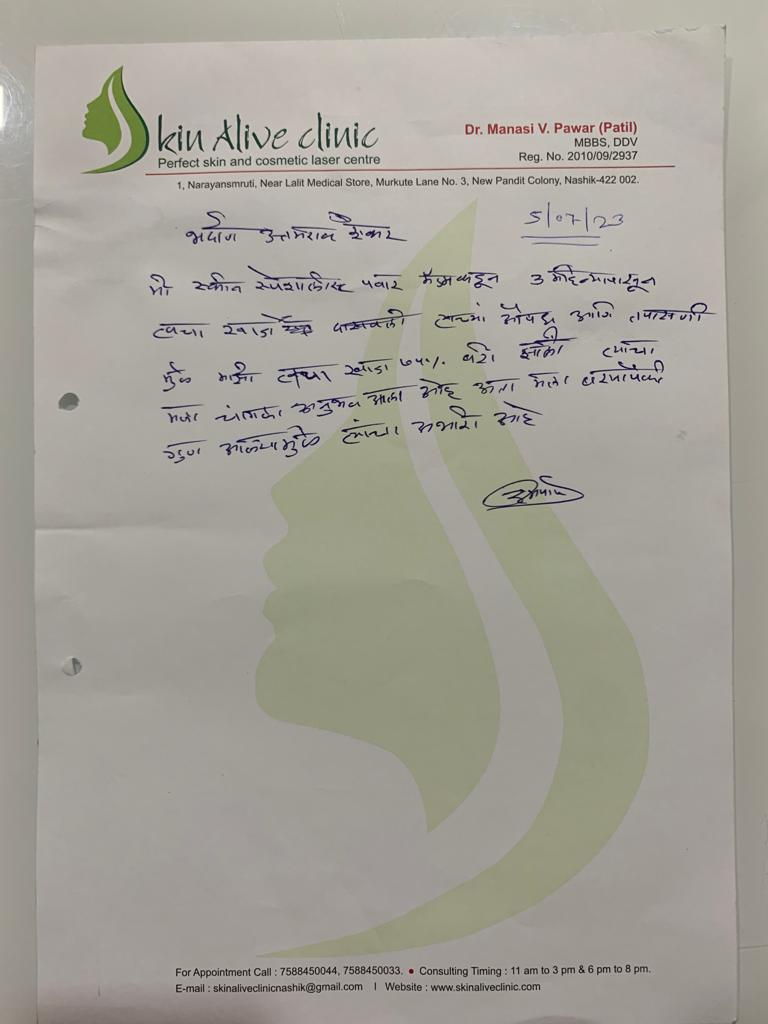 Skin Alive clinic
Perfect skin and cosmetic laser centre
Dr. Manasi V. Pawar (Patil)
MBBS, DDV
Reg. No. 2010/09/2937
1, Narayansmruti, Near Lalit Medical Store, Murkute Lane No. 3, New Pandit Colony, Nashik-422 002.
5/07/23
उत्तमराव
मी स्कीन स्पेशालीस्ट पवार मॅडमकडून 3 महिन्यापासून
त्वचा त्यांच्या औषध आणि तपासणी
मुळे माझी त्वचा ७५% बरी झाली त्यांचा
मला चांगला अनुभव आला आहे आता मला बऱ्यापैकी
गुण आल्यामुळे त्यांचा आभारी आहे
For Appointment Call : 7588450044, 7588450033. • Consulting Timing : 11 am to 3 pm & 6 pm to 8 pm.
E-mail : skinaliveclinicnashik@gmail.com | Website : www.skinaliveclinic.com